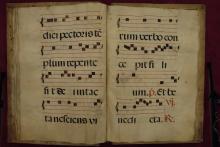 chei pectoris tē
plum repente
fit de intac
ta nesciens vi
rum verbo con
ce pit fili
um. p. Et be
nedi cta. R.